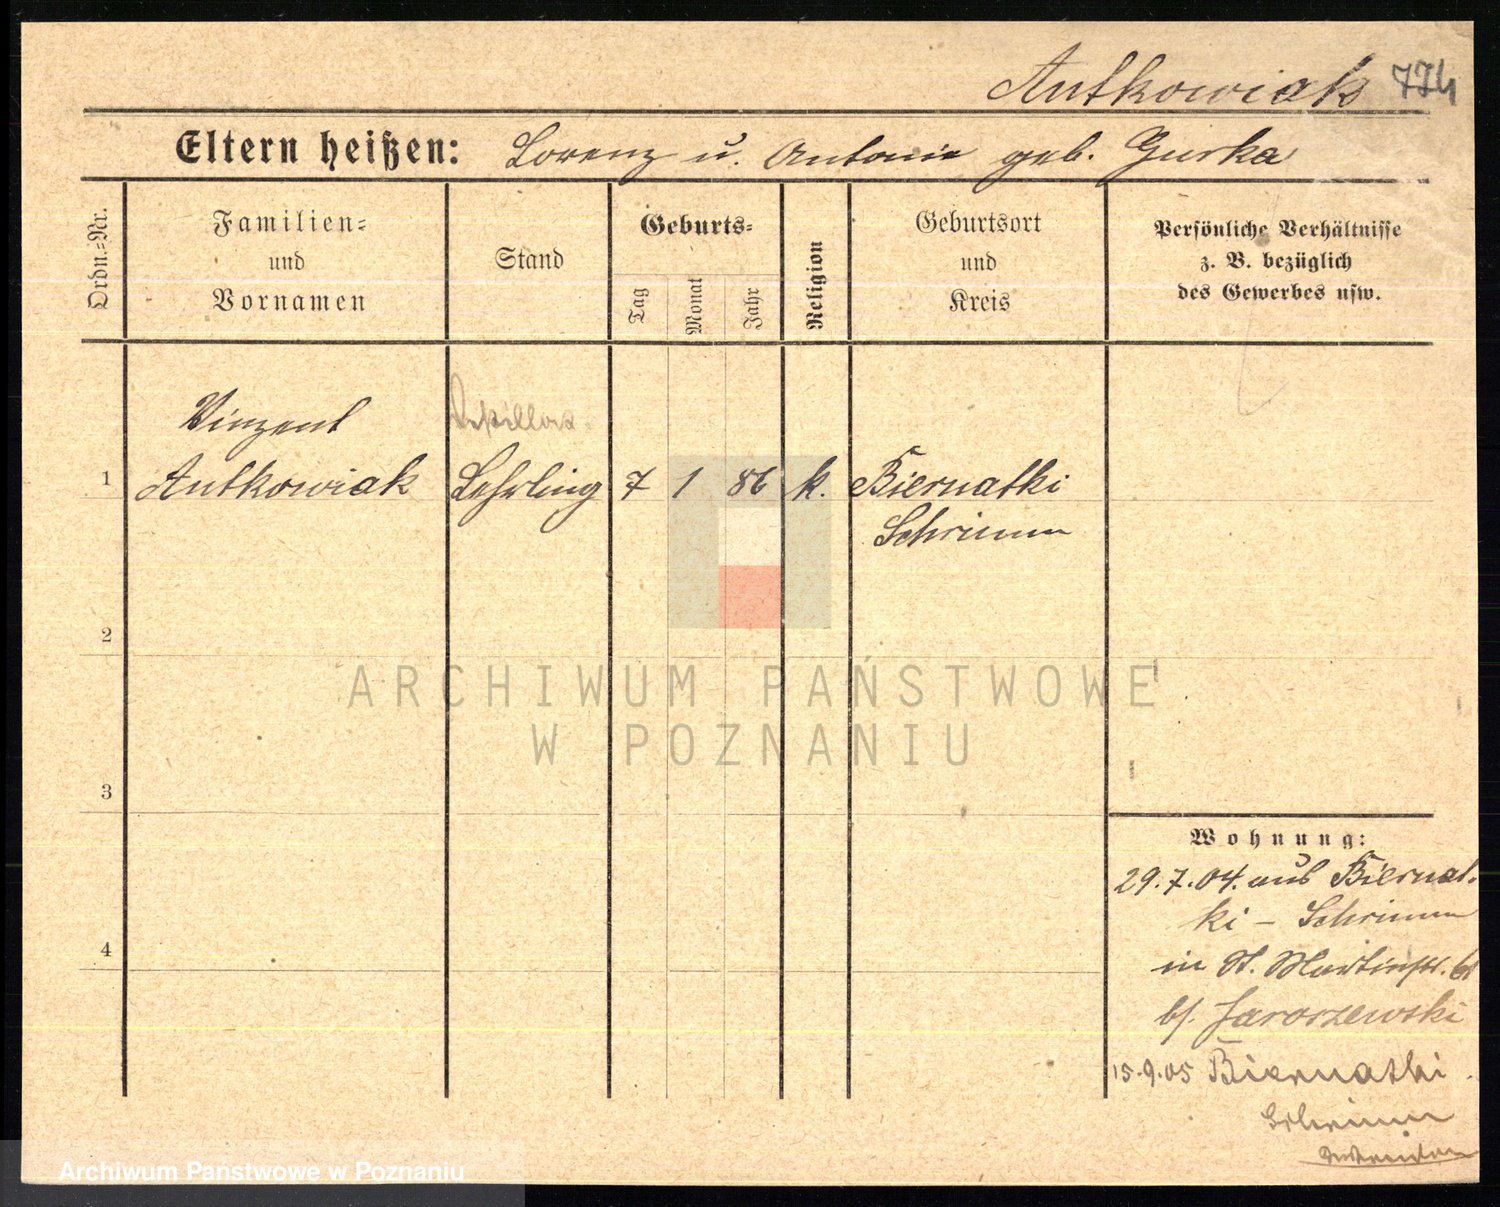 Antkowiak 774
Eltern heißen: Lorenz u. Antonie geb. Gurka
Ordn.=Nr.
Familien=
und
Vornamen
Stand
Geburts=
Tag
Monat
Jahr
Religion
Geburtsort
und
Kreis
Persönliche Verhältnisse
z. B. bezüglich
des Gewerbes usw.
Vinzent
1 Antkowiak Lehrling 7 1 86 k. Biernatki
Schrimm
2
3
4
Wohnung:
29.7.04. aus Biernat-
ki - Schrimm
in St. Martinstr.
b/. Jaroszewski
15.9.05 Biernatki
Schrimm
ARCHIWUM PAŃSTWOWE
W POZNANIU
Archiwum Państwowe w Poznaniu